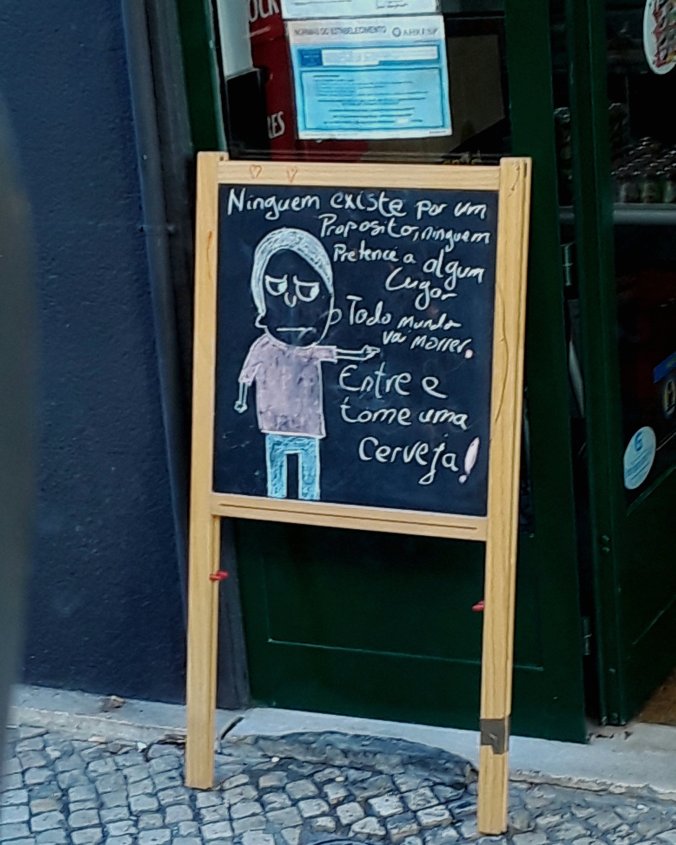 NORMAS DO ESTABELECIMENTO
AHRESP
RES
Ninguem existe por um
Proposito, ninguem
Pretence a algum
Lugar
Todo mundo
vai morrer.
Entre e
tome uma
Cerveja!